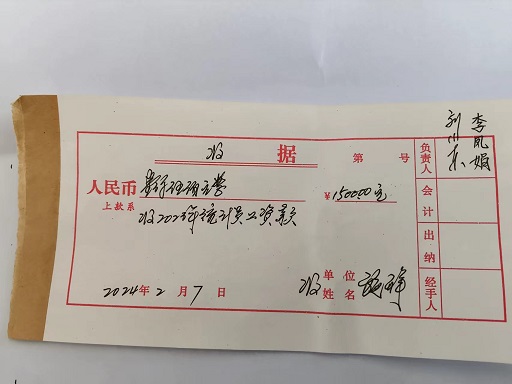 收 据 第 号
人民币 壹仟伍佰元整 ¥150000元
上款系 收202年统计员工资款
2024年2月7日
收 单位
姓名
负责人 李凤娟
会计
出纳
经手人